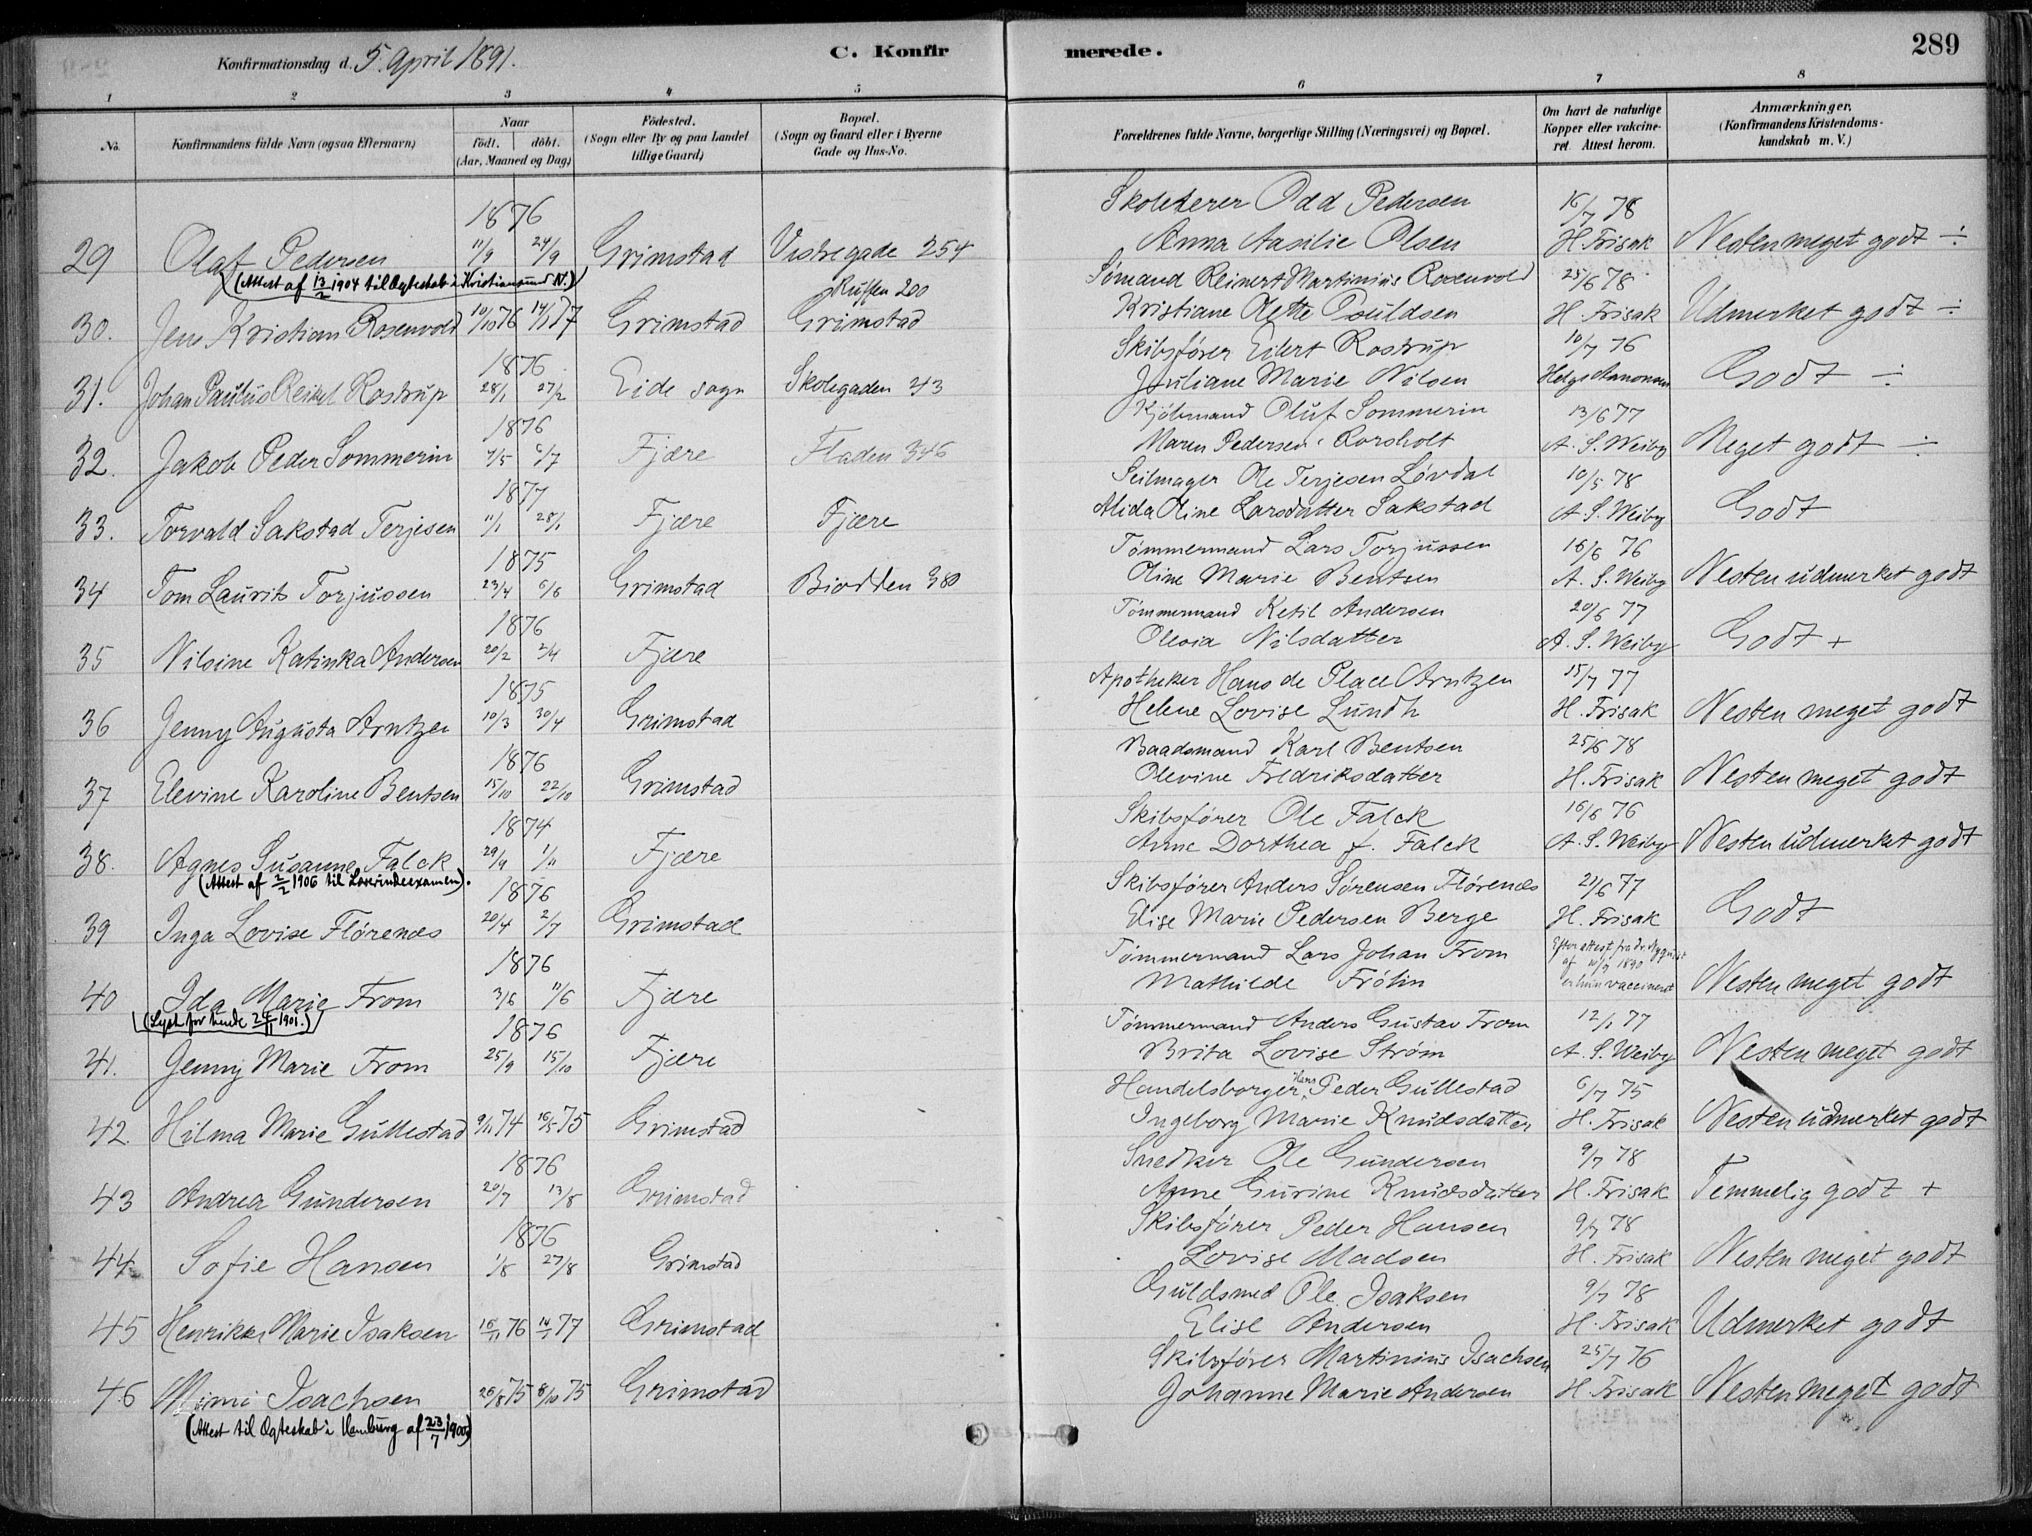 289
Konfirmationsdag d. 5. April 1891.
C. Konfirmerede.
1 2 3 4 5 6 7 8
No. Konfirmandens fulde Navn (ogsaa Efternavn) Naar födt. döbt. (Aar, Maaned og Dag) Födested. (Sogn eller By og paa Landet tillige Gaard) Bopæl. (Sogn og Gaard eller i Byerne Gade og Hus-No. Forældrenes fulde Navne, borgerlige Stilling (Næringsvei) og Bopæl. Om havt de naturlige Kopper eller vakcineret. Attest herom. Anmærkninger. (Konfirmandens Kristendomskundskab m. V.)
1876 Skolelærer Odd Pedersen 16/7 78
29 Olaf Pedersen 11/9 24/9 Grimstad Vestregade 254 Anna Aasilie Olsen H. Frisak Nesten meget godt ÷
(Attest af 13/2 1904 til Ægteskab i Kristiansund N.) 200 Sømand Reinert Martinius Rosenvold 25/6 78
30. Jens Kristian Rosenvold 10/10 76 14/1 77 Grimstad Grimstad Kristiane Olette H. Frisak Udmerket godt ÷
1876 Skibsfører Eilert Rostrup 10/7 76
31. Johan Paulus Rostrup 28/1 27/2 Eide sogn Skolegaden 43 Juliane Marie Nilsen Helge Aanonsen Godt ÷
1876 Kjøbmand Oluf Sommerin 13/6 77
32. Jakob Peder Sommerin 7/5 6/7 Fjære Fladen 346 Maren Pedersen A. S. Weiby Meget godt ÷
1877 Seilmager Ole Terjesen Løvdal 10/5 78
33. Torvald Sakstad Terjesen 11/1 28/1 Fjære Fjære Alida Oline Larsdatter Sakstad A. S. Weiby Godt
1875 Tømmermand Lars Torjussen 16/6 76
34 Tom Laurits Torjussen 23/4 6/6 Grimstad Biodden 380 Oline Marie Bentsen A. S. Weiby Nesten udmerket godt
1876 Tømmermand Ketil Andersen 20/6 77
35 Nilsine Katinka Andersen 20/2 2/4 Fjære Olevia Nilsdatter A. S. Weiby Godt +
1875 Apotheker Hans de Place Arntzen 15/7 77
36 Jenny Augusta Arntzen 10/3 30/4 Grimstad Helene Lovise Lundh H. Frisak Nesten meget godt
1876 Baadsmand Karl Bentsen 25/6 78
37 Elevine Karoline Bentsen 15/10 22/10 Grimstad Olevine Fredriksdatter H. Frisak Nesten meget godt
1874 Skibsfører Ole Falck 16/6 76
38. Agnes Susanne Falck 29/9 1/11 Fjære Anne Dorthea f. Falck A. S. Weiby Nesten udmerket godt
(Attest af 2/2 1906 til Lærerindeexamen). 1876 Skibsfører Anders Sørensen Flørenæs 21/6 77
39 Inga Lovise Flørenæs 20/4 2/7 Grimstad Elise Marie Pedersen Berge H. Frisak Godt
1876 Tømmermand Lars Johan From Efter attest fra dr. Nyquist af 10/9 1890
40 Ida Marie From 3/6 11/6 Fjære Mathilde Fröhn er hun vaccineret Nesten meget godt
(Lyst for hende 1901.) 1876 Tømmermand Anders Gustav From 12/1 77
41. Jenny Marie From 25/9 15/10 Fjære Brita Lovise Strøm A. S. Weiby Nesten meget godt
Handelsborger Hans Peder Gullestad 6/7 75
42. Hilma Marie Gullestad 9/11 74 16/5 75 Grimstad Ingeborg Marie Knudsdatter H. Frisak Nesten udmerket godt
1876 Snedker Ole Gundersen 9/7 78
43 Andrea Gundersen 20/7 13/8 Grimstad Anne Gurine Knudsdatter H. Frisak Temmelig godt +
1876 Skibsfører Peder Hansen 9/7 78
44. Sofie Hansen 1/8 27/8 Grimstad Lovise Madsen H. Frisak Nesten meget godt
Guldsmed Ole Isaksen 9/7 78
45 Henrikka Marie Isaksen 16/11 76 14/1 77 Grimstad Elise Andersen H. Frisak Udmerket godt
Skibsfører Martinius Isachsen 25/7 76
46 Mimi Isachsen 26/8 75 8/10 75 Grimstad Johanne Marie Andersen H. Frisak Nesten meget godt
(Attest til Ægteskab i Hamburg af 23/7 1900)